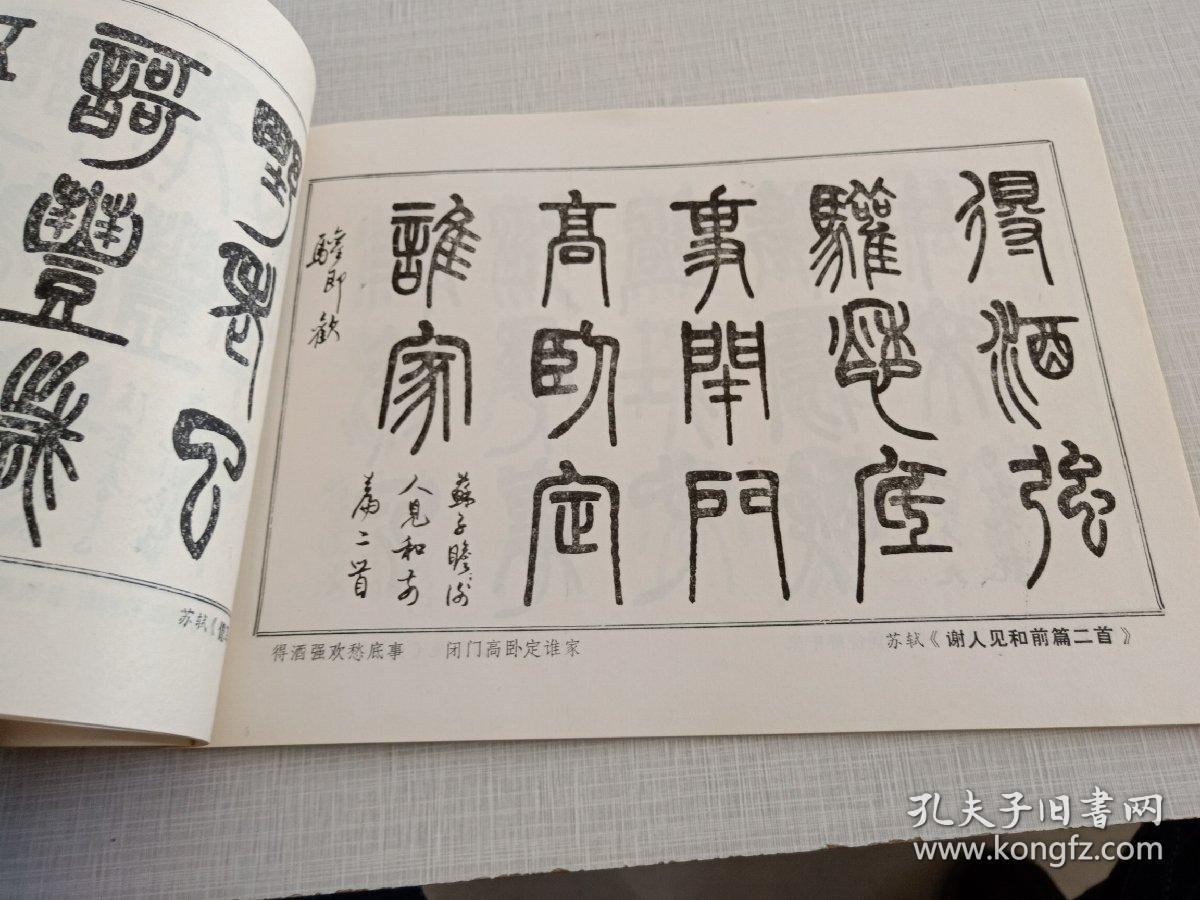 得酒强
驩愁底
事閉門
高臥定
誰家
蘇子瞻謝
人見和前
篇二首
驩即歡
得酒强欢愁底事 闭门高卧定谁家
苏轼《谢人见和前篇二首》
野哀公
謌豐
苏轼《
孔夫子旧书网
www.kongfz.com